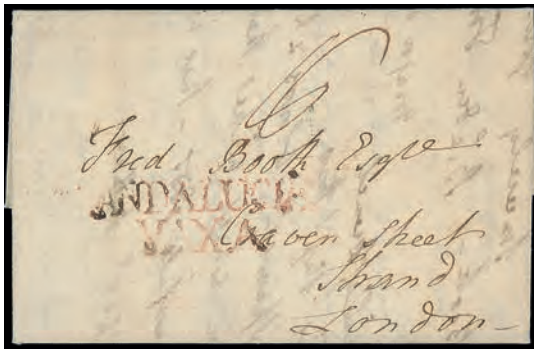 6
Fred Booth Esqre
ANDALUCIA
BAXA
Craven Street
Strand
London